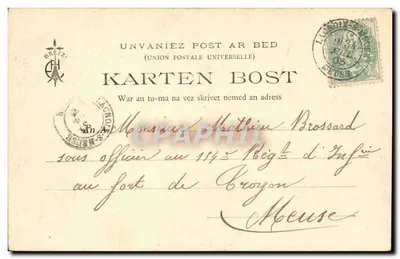 BREIZ
UNVANIEZ POST AR BED
(UNION POSTALE UNIVERSELLE)
KARTEN BOST
War an tu-ma na vez skrivet nemed an adress
LACROIX-S-MEUSE
MEUSE
LACROIX-S-MEUSE
An A
Monsieur Mathieu Brossard
sous officier au 154e Régt d'Infie
au fort de Troyon
Meuse